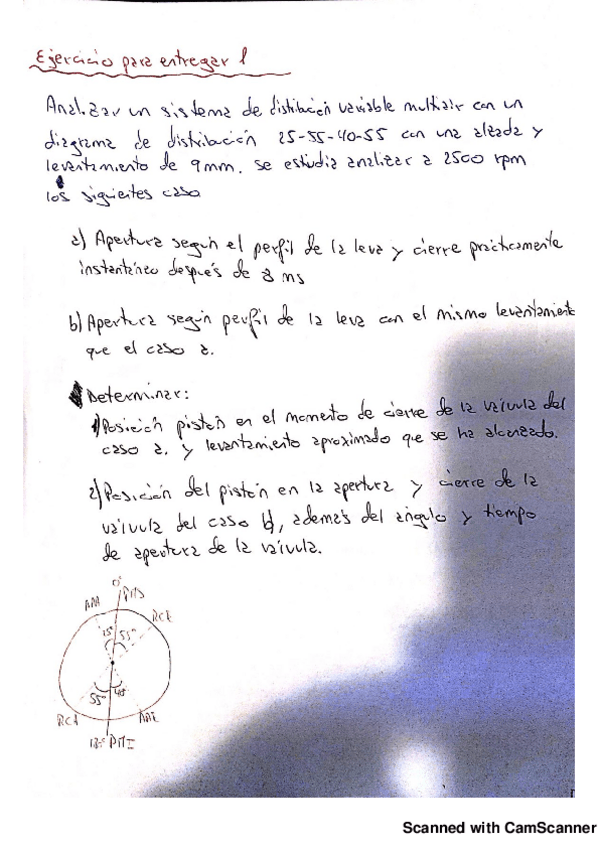 Ejercicio para entregar 1
Analizar un sistema de distribución variable multiair con un
diagrama de distribución 25-55-40-55 con una alzada y
levantamiento de 9mm. se estudia analizar a 2500 rpm
los siguientes caso
a) Apertura según el perfil de la leva y cierre prácticamente
instantáneo después de 8 ms
b) Apertura según perfil de la leva con el mismo levantamiento
que el caso a.
Determinar:
1) Posición pistón en el momento de cierre de la válvula del
caso a. y levantamiento aproximado que se ha alcanzado.
2) Posición del pistón en la apertura y cierre de la
válvula del caso b, además del ángulo y tiempo
de apertura de la válvula.
0°
PMS
AAA
RCE
25°
55°
55°
40°
RCA
AAE
180° PMI
Scanned with CamScanner